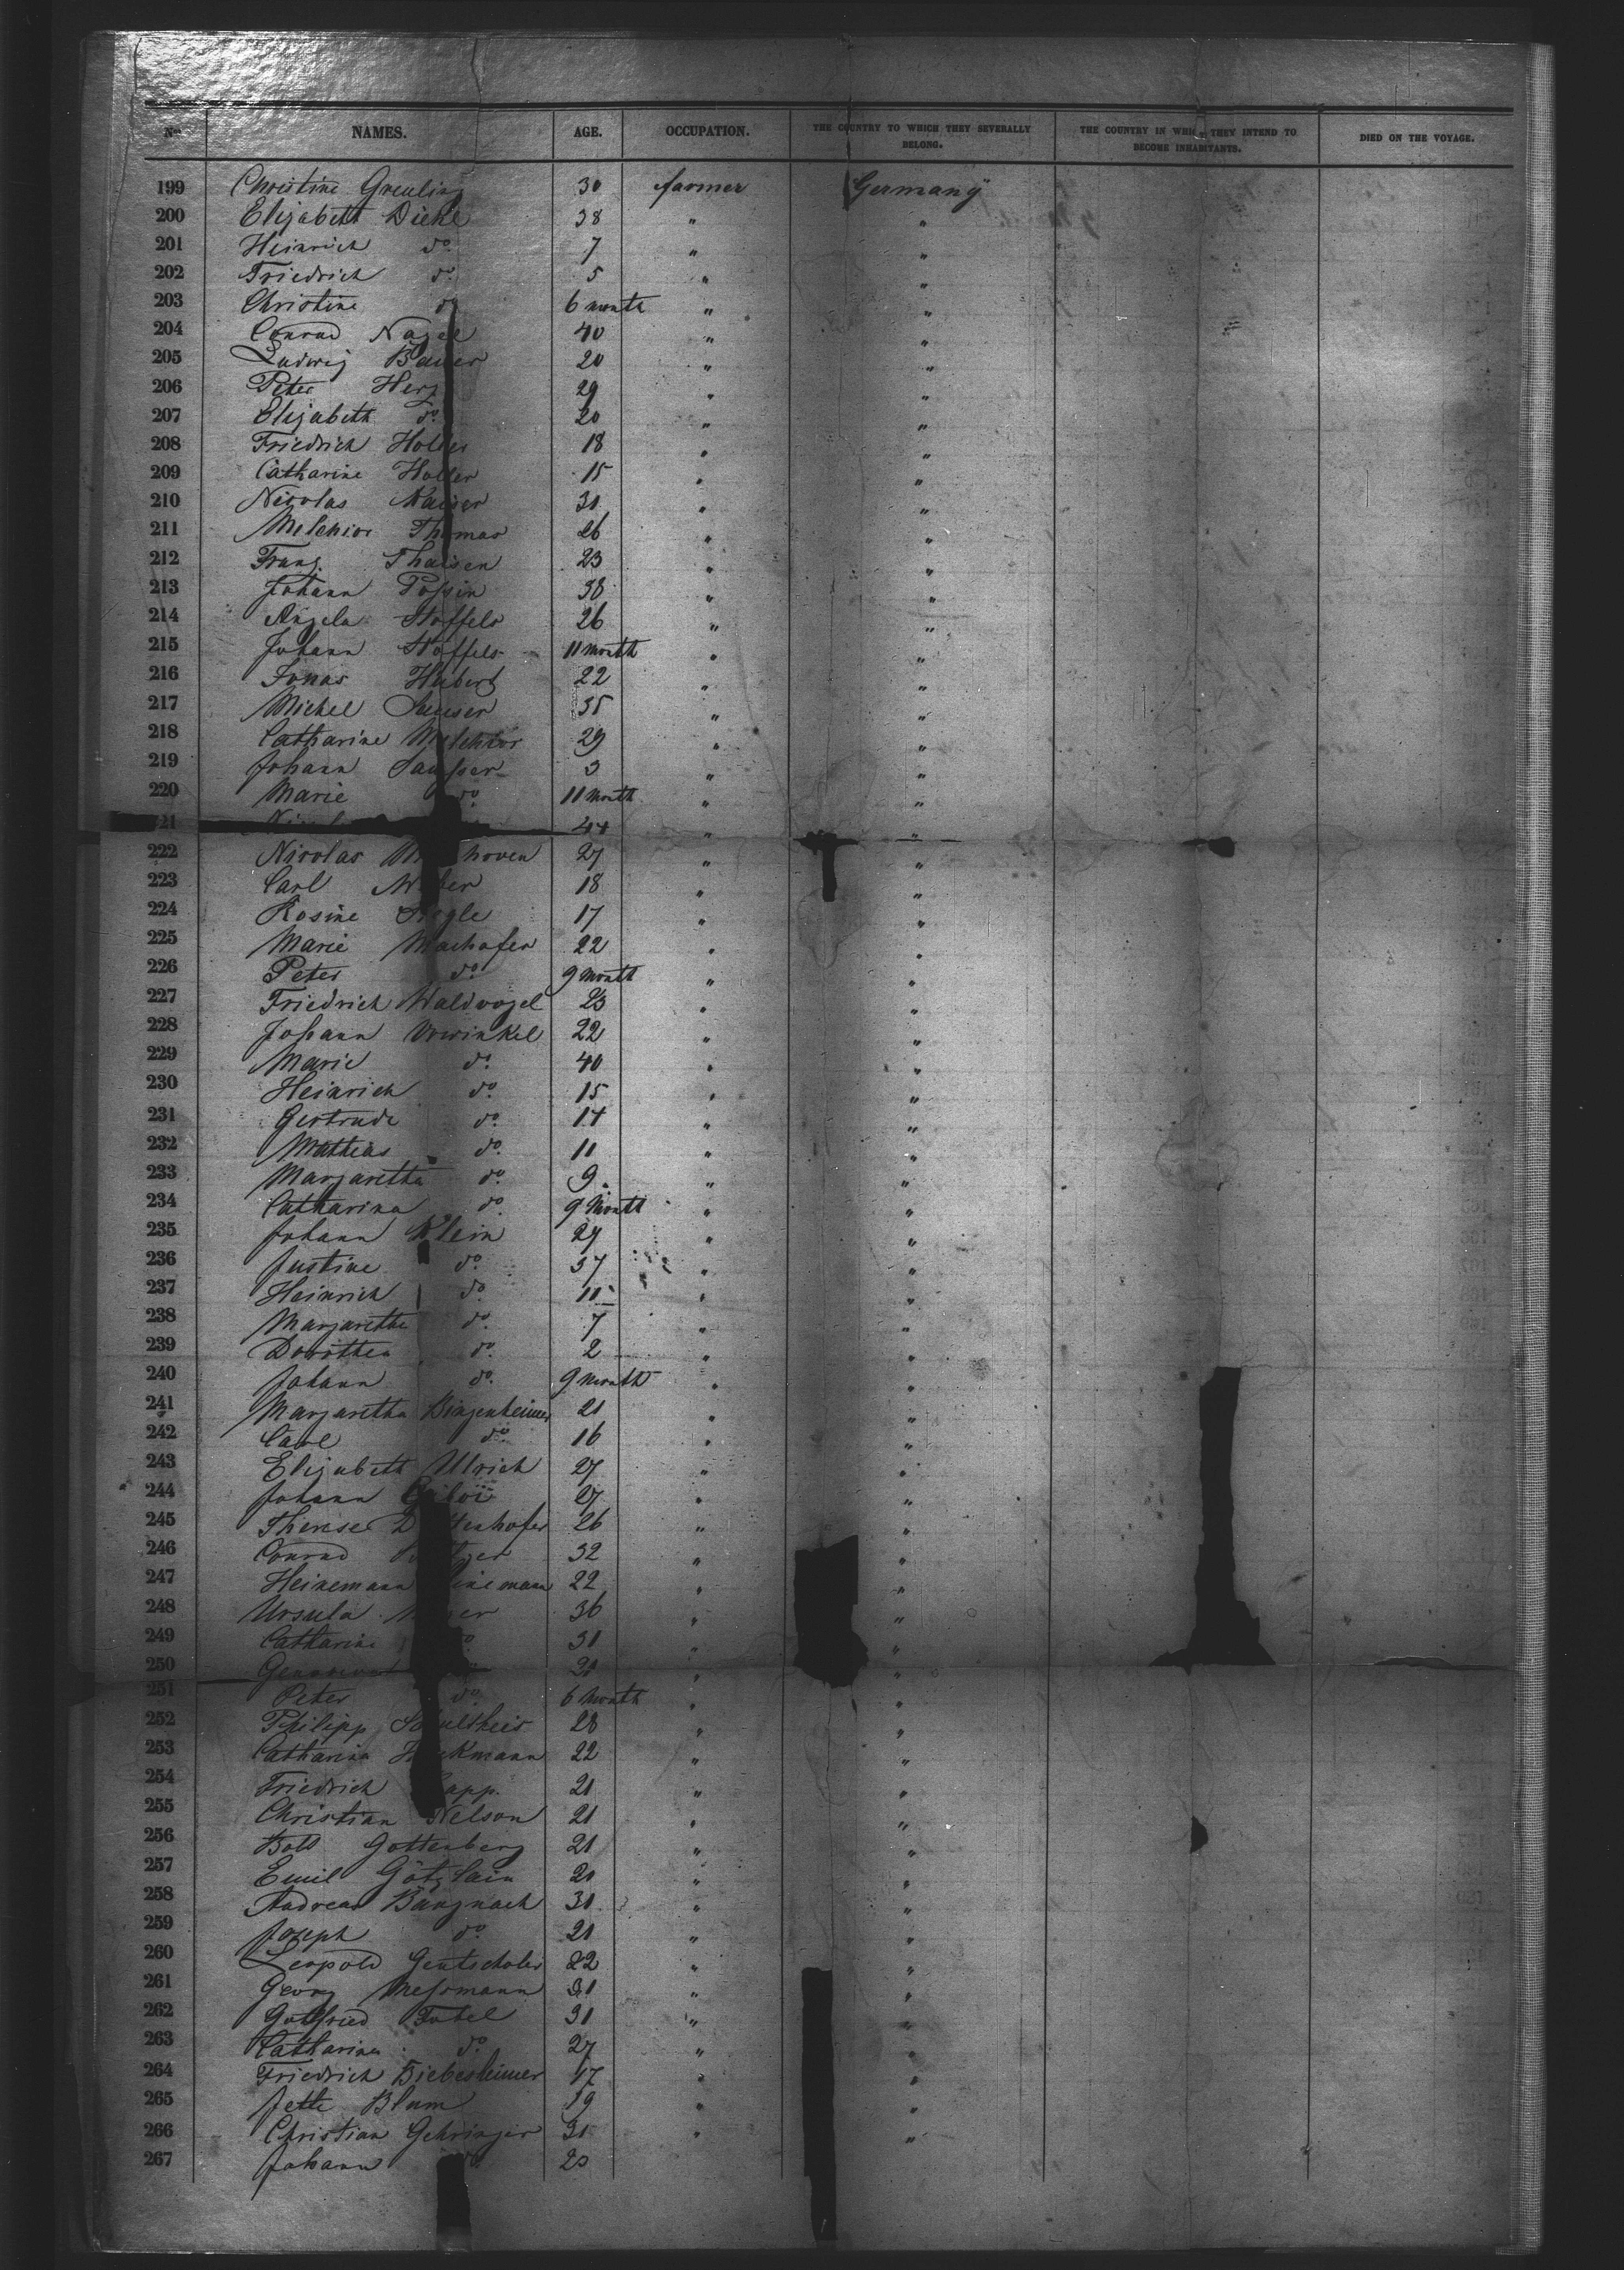 Nos NAMES. AGE. OCCUPATION. THE COUNTRY TO WHICH THEY SEVERALLY BELONG. THE COUNTRY IN WHICH THEY INTEND TO BECOME INHABITANTS. DIED ON THE VOYAGE.
199 Christine Greuling 30 farmer Germany
200 Elizabeth Diehl 38 " "
201 Heinrich do. 7 " "
202 Friedrich do. 5 " "
203 Christine do 6 month " "
204 Conrad Nagel 40 " "
205 Ludwig Bauer 20 " "
206 Peter Herz 29 " "
207 Elizabeth do. 20 " "
208 Friedrich 18 " "
209 Catharine Holler 15 " "
210 Nicolas Kaiser 31 " "
211 Melchior Thomas 26 " "
212 Franz Thaisen 23 " "
213 Johann Possin 38 " "
214 Angela Stoffels 26 " "
215 Johann Stoffels 11 month " "
216 Jonas Hubert 22 " "
217 Michel Sausser 35 " "
218 Catharine Melchior 29 " "
219 Johann Sausser 3 " "
220 Marie do 11 month " "
21 44 " "
222 Nicolas hoven 27 " "
223 Carl 18 " "
224 Rosine 17 " "
225 Marie Machofer 22 " "
226 Peter do. 9 month " "
227 Friedrich Waldvogel 23 " "
228 Johann Vorwinkel 22 " "
229 Marie do. 40 " "
230 Heinrich do. 15 " "
231 Gertrude do. 14 " "
232 Mathias do. 11 " "
233 Margaretha do. 9. " "
234 Catharina do. 9 Month " "
235 Johann Klein 29 " "
236 Justine do. 37 " "
237 Heinrich do. 11 " "
238 Margaretha do. 7 " "
239 Dorothea do. 2 " "
240 Johann do. 9 month " "
241 Margaretha Bingenheimer 21 " "
242 Carl do. 16 " "
243 Elizabeth Ulrich 27 " "
244 Johann 27 " "
245 Therese 26 " "
246 Conrad 32 " "
247 Heinemann 22 " "
248 Ursula 36 " "
249 Catharine do 31 " "
250 21 " "
251 Peter do. 6 month " "
252 Philipp Schultheis 28 " "
253 Catharina 22 " "
254 Friedrich app. 21 " "
255 Christian Nelson 21 " "
256 Gottenberg 21 " "
257 Emil Götzlain 21 " "
258 Andreas Bangnach 31 " "
259 Joseph do. 21 " "
260 Leopold Gentscholer 22 " "
261 Georg Messmann 31 " "
262 Gottfried Fabel 31 " "
263 Catharina do. 27 " "
264 Friedrich Biebesheimer 17 " "
265 Jette Blum 19 " "
266 Christian Gehringer 31 " "
267 Johann 20